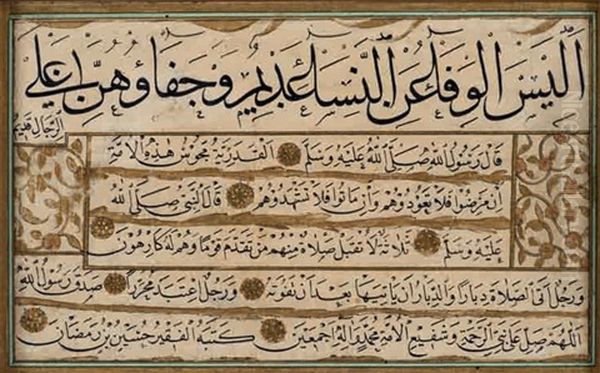 اليس الوفاء عن النساء عديم وجفاؤهن على
الرجال قديم
قال رسول الله صلى الله عليه وسلم القدرية مجوس هذه الامة
ان مرضوا فلا تعودوهم وان ماتوا فلا تشهدوهم قال النبي صلى الله
عليه وسلم ثلاثة لا تقبل صلاة منهم من تقدم قوما وهم له كارهون
ورجل اتى الصلاة دبارا والدبار ان ياتيها بعد ان تفوته ورجل اعتبد محررا صدق رسول الله
اللهم صل على نبي الرحمة وشفيع الامة محمد واله اجمعين كتبه الفقير حسين بن رمضان